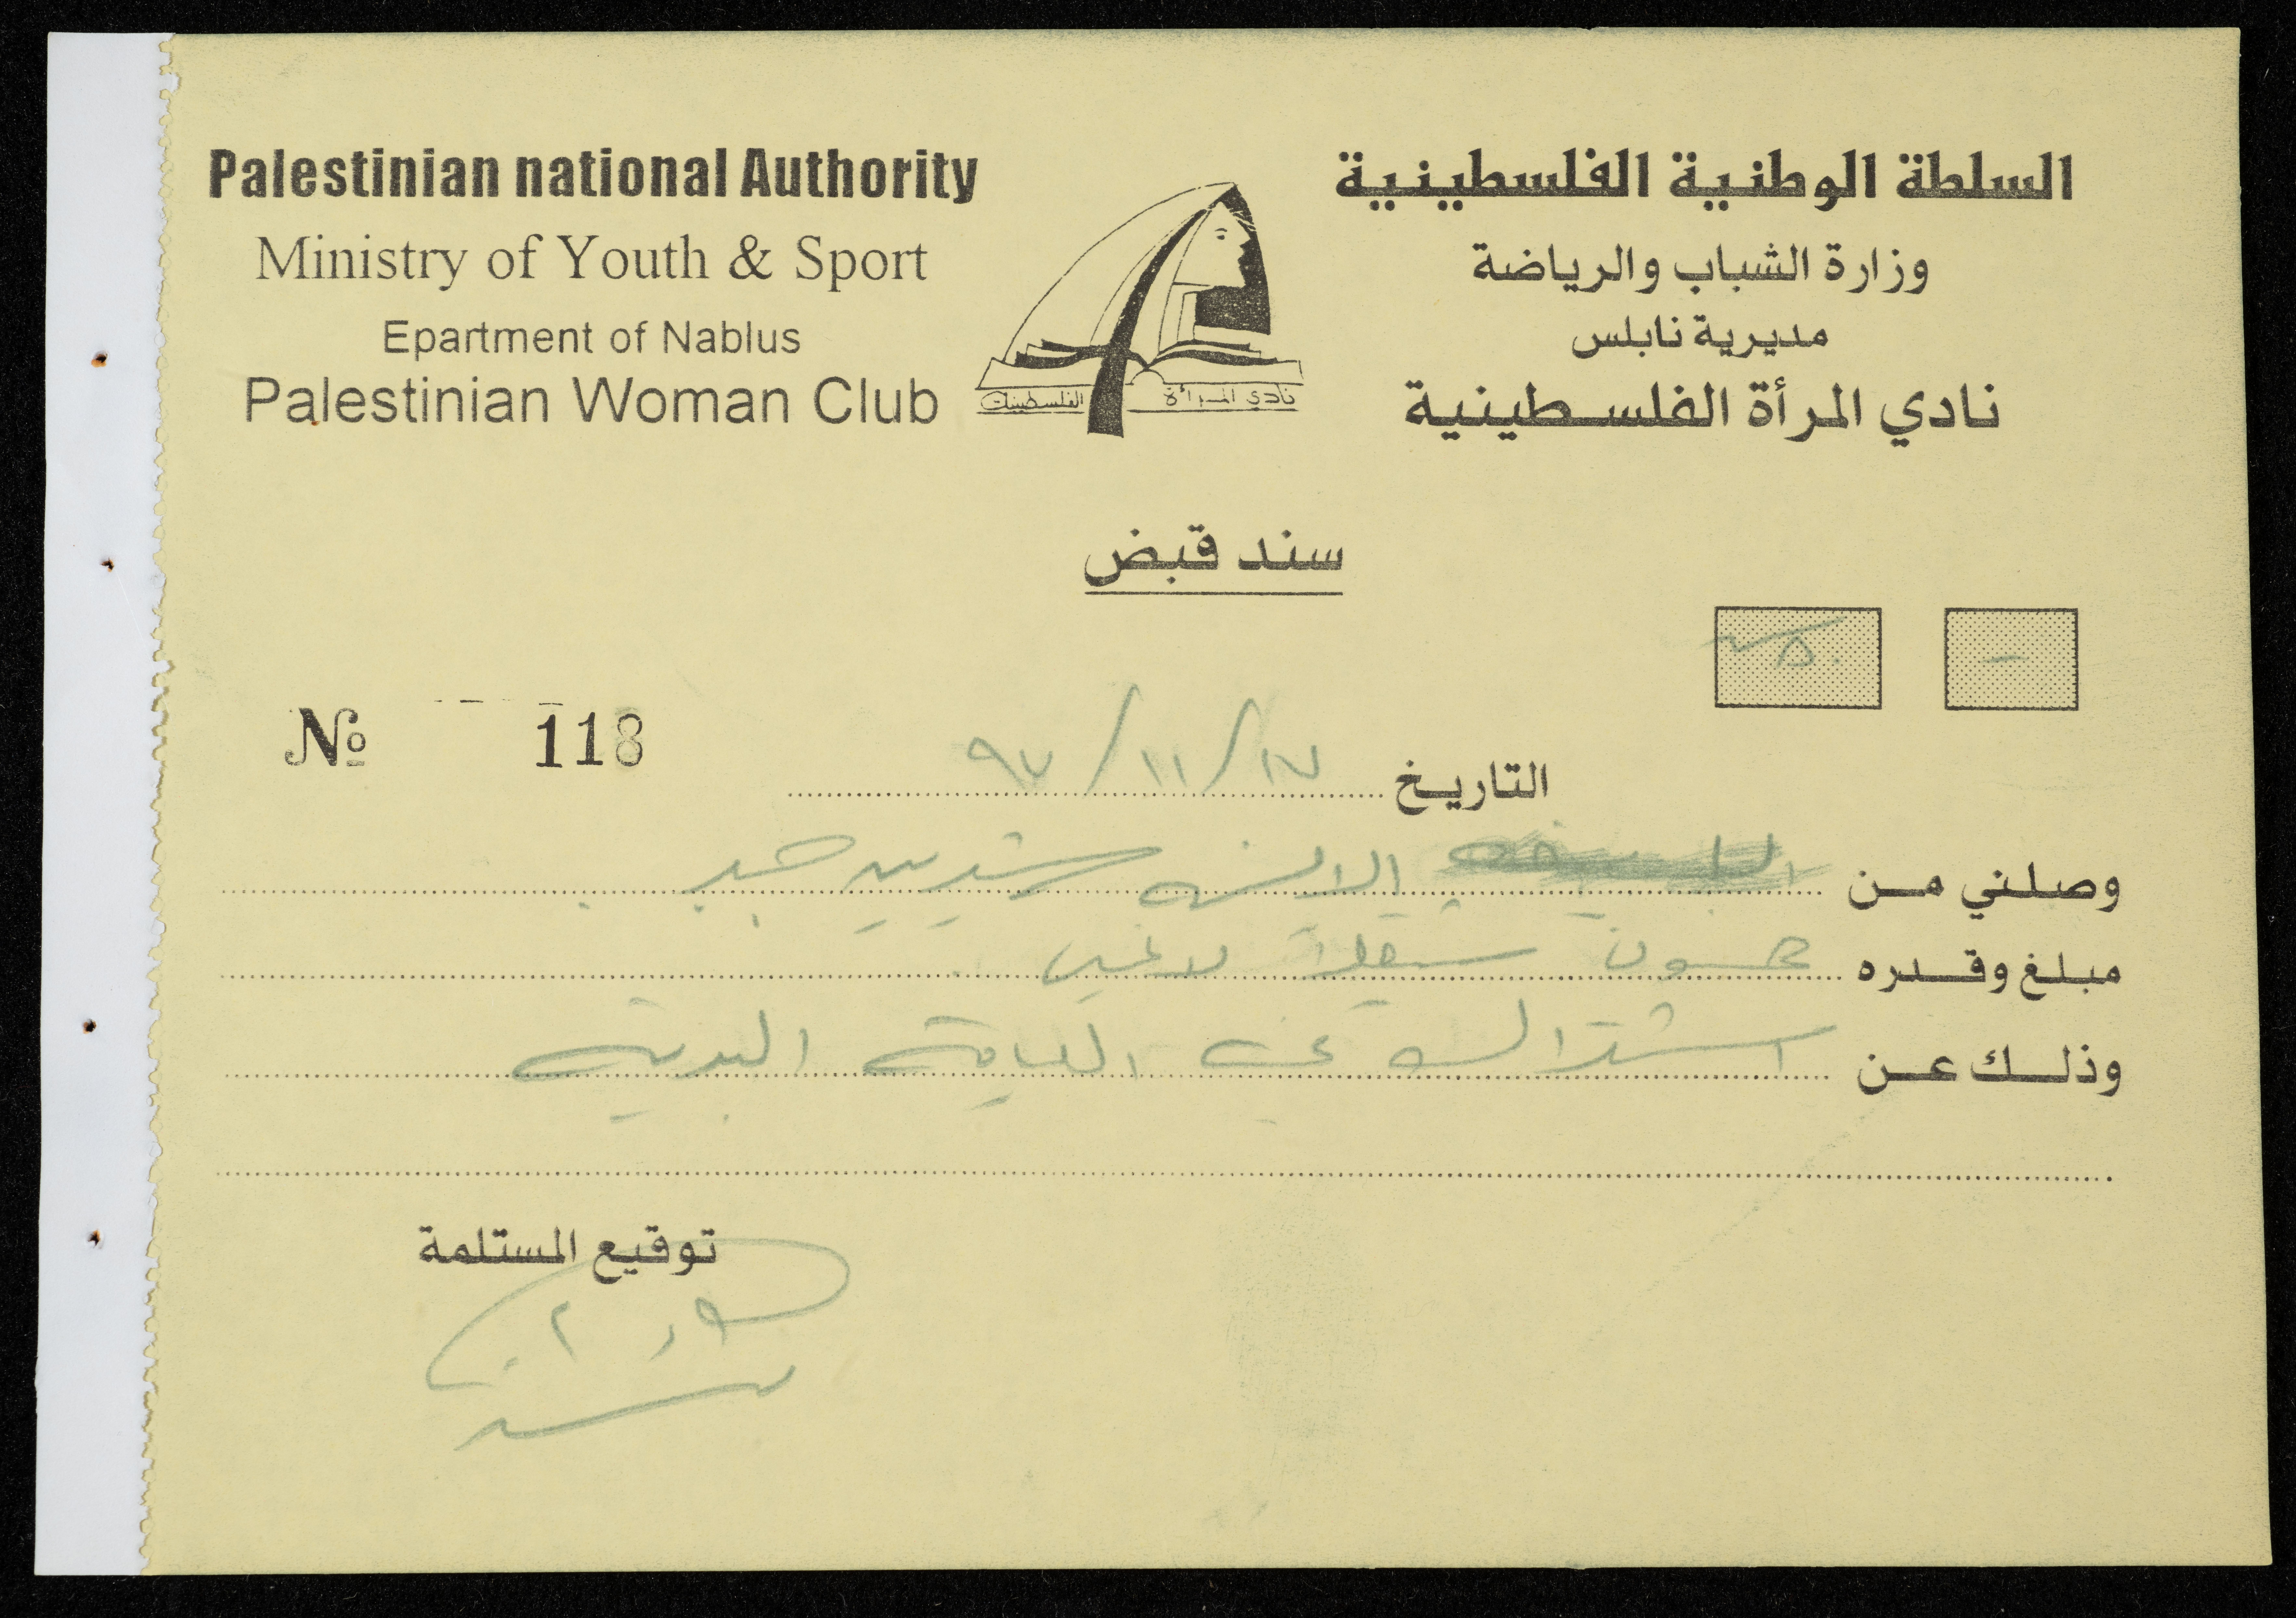 Palestinian national Authority
Ministry of Youth & Sport
Epartment of Nablus
Palestinian Woman Club
السلطة الوطنية الفلسطينية
وزارة الشباب والرياضة
مديرية نابلس
نادي المرأة الفلسطينية
نادي المرأة الفلسطينية
سند قبض
٥٠
-
№ 118
التاريخ ١٧/١١/٩٧
وصلني من الانسه شيرين
مبلغ وقدره خمسون شيقلاً لا غير
وذلك عن اشتراك في اللياقة البدنية
توقيع المستلمة